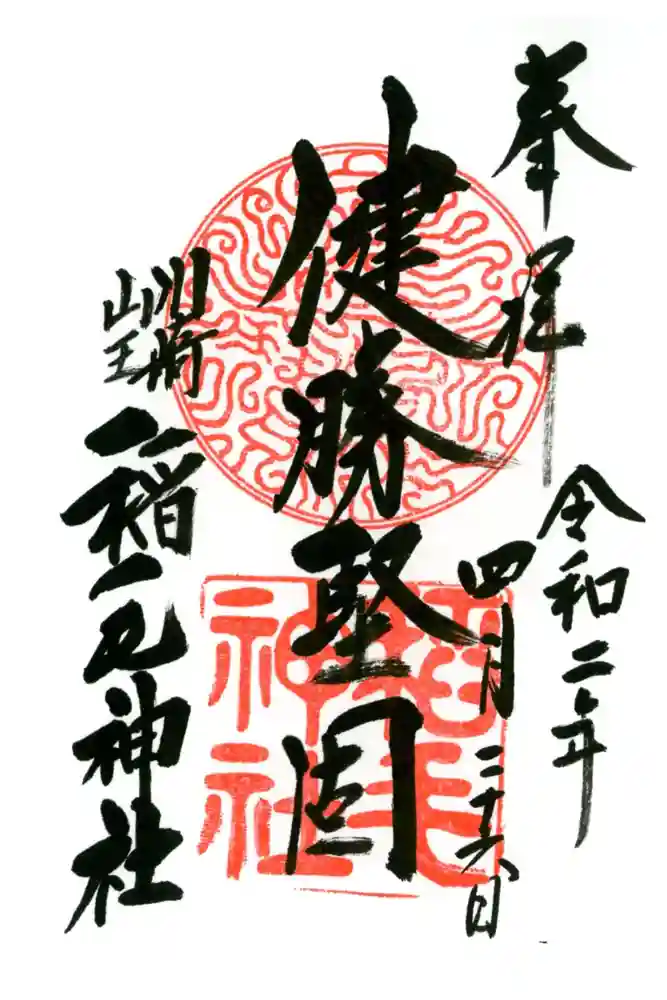 奉拝
令和二年
四月二十六日
健勝堅固
川崎
山王
稲毛神社
稲毛
神社